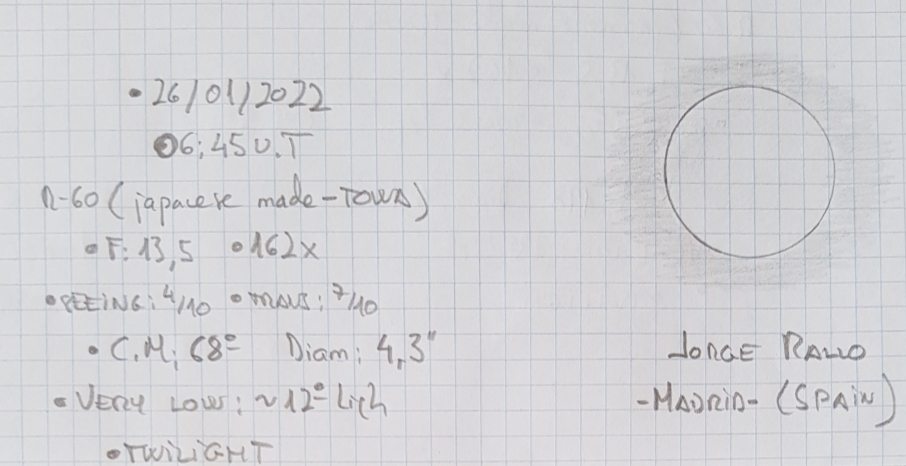 • 26/01/2022
06:45 U.T
R-60 (japanese made-TOWA)
• F: 13,5 • 162x
• SEEING: 4/10 • TRANS: 7/10
• C.M: 68º Diam: 4,3"
• VERY LOW: ~12º high
• TWILIGHT
JORGE RALLO
-MADRID- (SPAIN)